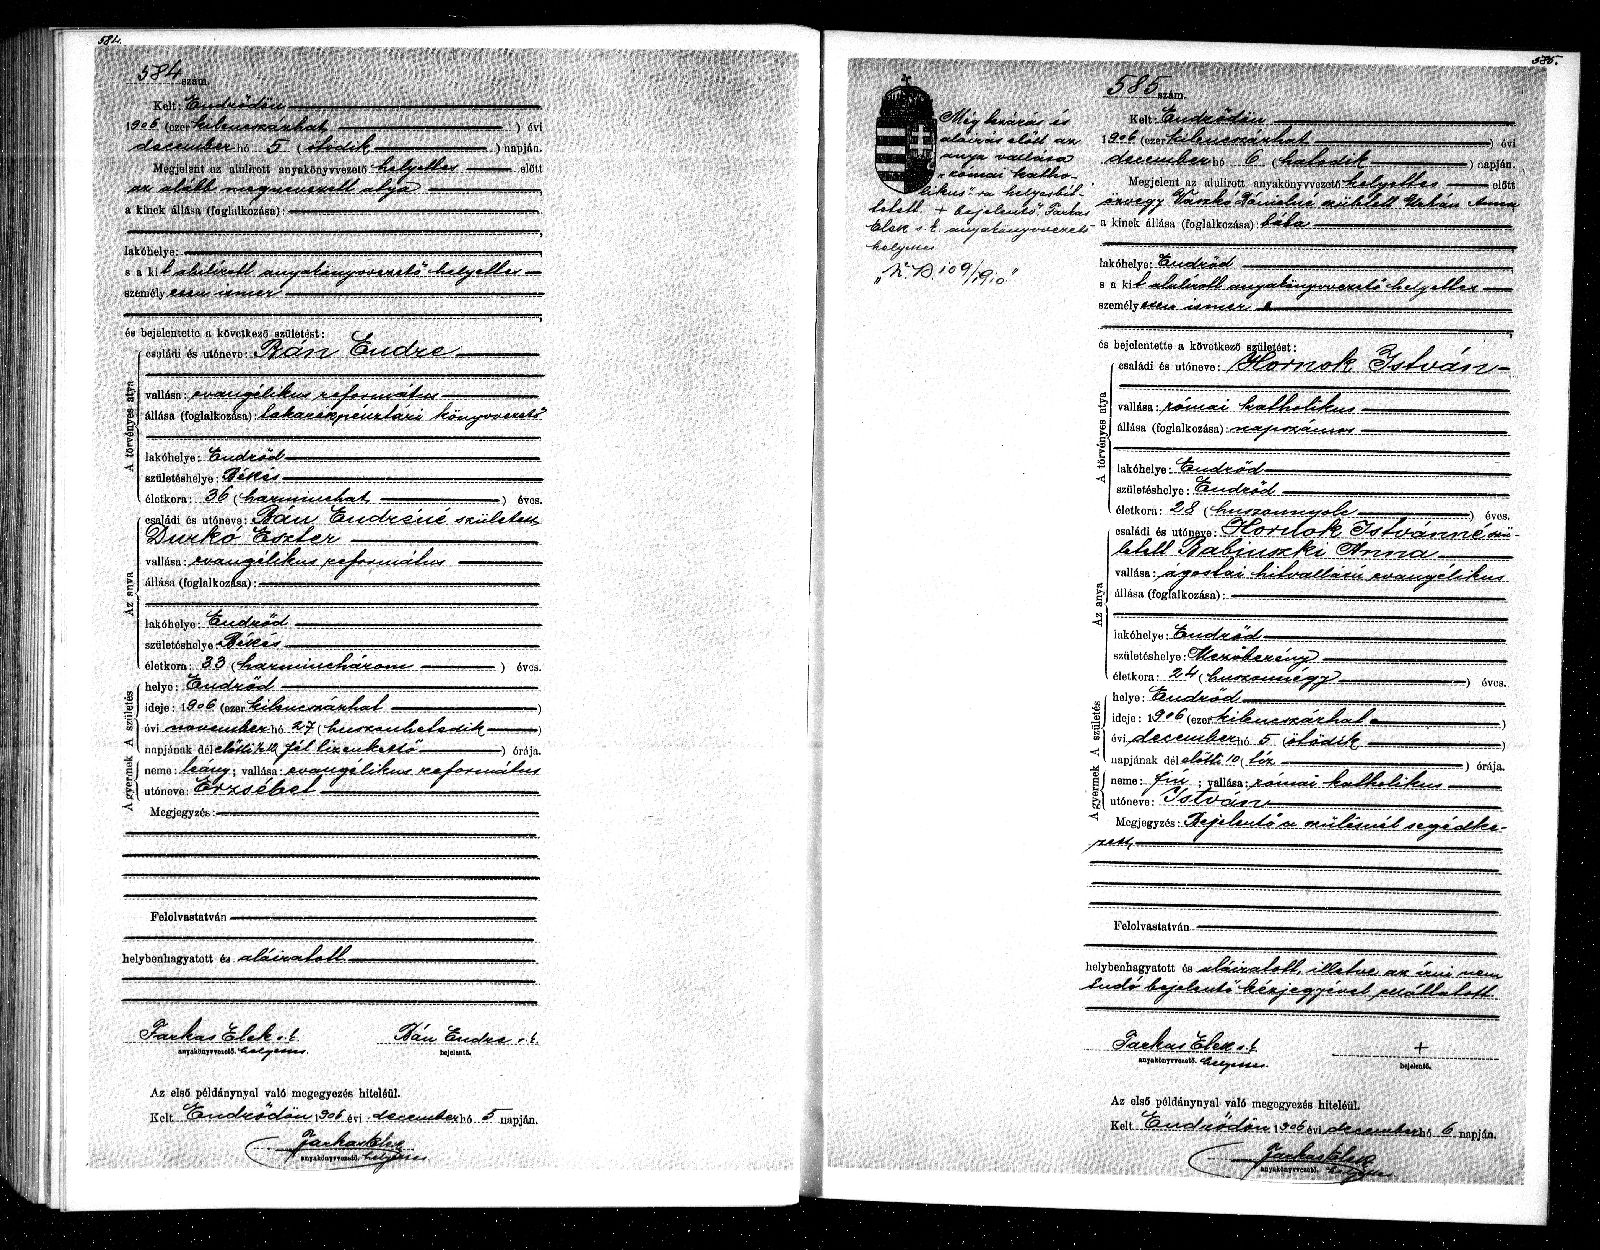 584.
584 szám.
Kelt: Endrődön
1906 (ezer kilenczszázhat) évi
december hó 5 (ötödik) napján.
Megjelent az alulirott anyakönyvvezető helyettes előtt
az alább megnevezett atya
a kinek állása (foglalkozása):
lakóhelye:
s a kit alulírott anyakönyvvezető helyettes
személyesen ismer
és bejelentette a következő születést:
A törvényes atya
családi és utóneve: Bán Endre
vallása: evangélikus református
állása (foglalkozása): takarékpénztári könyvvezető
lakóhelye: Endrőd
születéshelye: Békés
életkora: 36 (harminchat) éves.
Az anya
családi és utóneve: Bán Endréné született
Durkó Eszter
vallása: evangélikus református
állása (foglalkozása):
lakóhelye: Endrőd
születéshelye: Békés
életkora: 33 (harminchárom) éves.
A gyermek A születés
helye: Endrőd
ideje: 1906 (ezer kilenczszázhat)
évi november hó 27 (huszonhetedik)
napjának dél előtti ½12 (fél tizenkettő) órája.
neme: leány; vallása: evangélikus református
utóneve: Erzsébet
Megjegyzés:
Felolvastatván
helybenhagyatott és aláiratott
Farkas Elek s. k. Bán Endre s. k.
anyakönyvvezető. helyettes. bejelentő.
Az első példánynyal való megegyezés hiteléül.
Kelt Endrődön 1906 évi december hó 5 napján.
Farkas Elek
anyakönyvvezető. helyettes
585.
Még lezárás és
aláírás előtt az
anya vallása
"római katho-
likus"-ra helyesbít-
tetett. + bejelentő. Farkas
Elek s. k. anyakönyvvezető-
helyettes
109/1910"
585 szám.
Kelt: Endrődön
1906 (ezer kilenczszázhat) évi
december hó 6 (hatodik) napján.
Megjelent az alulirott anyakönyvvezető helyettes előtt
özvegy Vaszkó Dánielné született Urbán Anna
a kinek állása (foglalkozása): bába
lakóhelye: Endrőd
s a kit alulírott anyakönyvvezető helyettes
személyesen ismer
és bejelentette a következő születést:
A törvényes atya
családi és utóneve: Hornok István
vallása: római katholikus
állása (foglalkozása): napszámos
lakóhelye: Endrőd
születéshelye: Endrőd
életkora: 28 (huszonnyolc) éves.
Az anya
családi és utóneve: Hornok Istvánné szü-
letett Babinszki Anna
vallása: ágostai hitvallású evangélikus
állása (foglalkozása):
lakóhelye: Endrőd
születéshelye: Mezőberény
életkora: 24 (huszonnégy) éves.
A gyermek A születés
helye: Endrőd
ideje: 1906 (ezer kilenczszázhat)
évi december hó 5 (ötödik)
napjának dél előtti 10 (tíz) órája.
neme: fiú; vallása: római katholikus
utóneve: István
Megjegyzés: Bejelentő a szülésnél segédke-
zett.
Felolvastatván
helybenhagyatott és aláiratott, illetve az írni nem
tudó bejelentő kézjegyével elláttatott
Farkas Elek s. k. +
anyakönyvvezető. helyettes. bejelentő.
Az első példánynyal való megegyezés hiteléül.
Kelt Endrődön 1906 évi december hó 6 napján.
Farkas Elek
anyakönyvvezető. helyettes